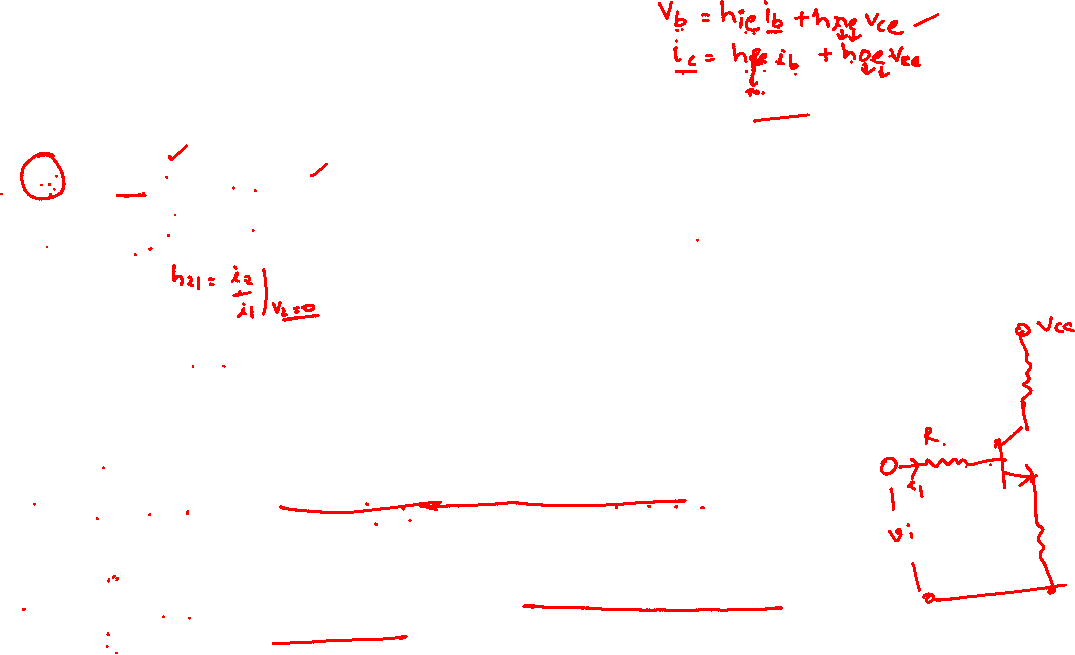 Vb = hie ib + hre Vce
ic = hfe ib + hoe Vce
h21 = i2/i1 | V2=0
Vcc
R
i1
vi